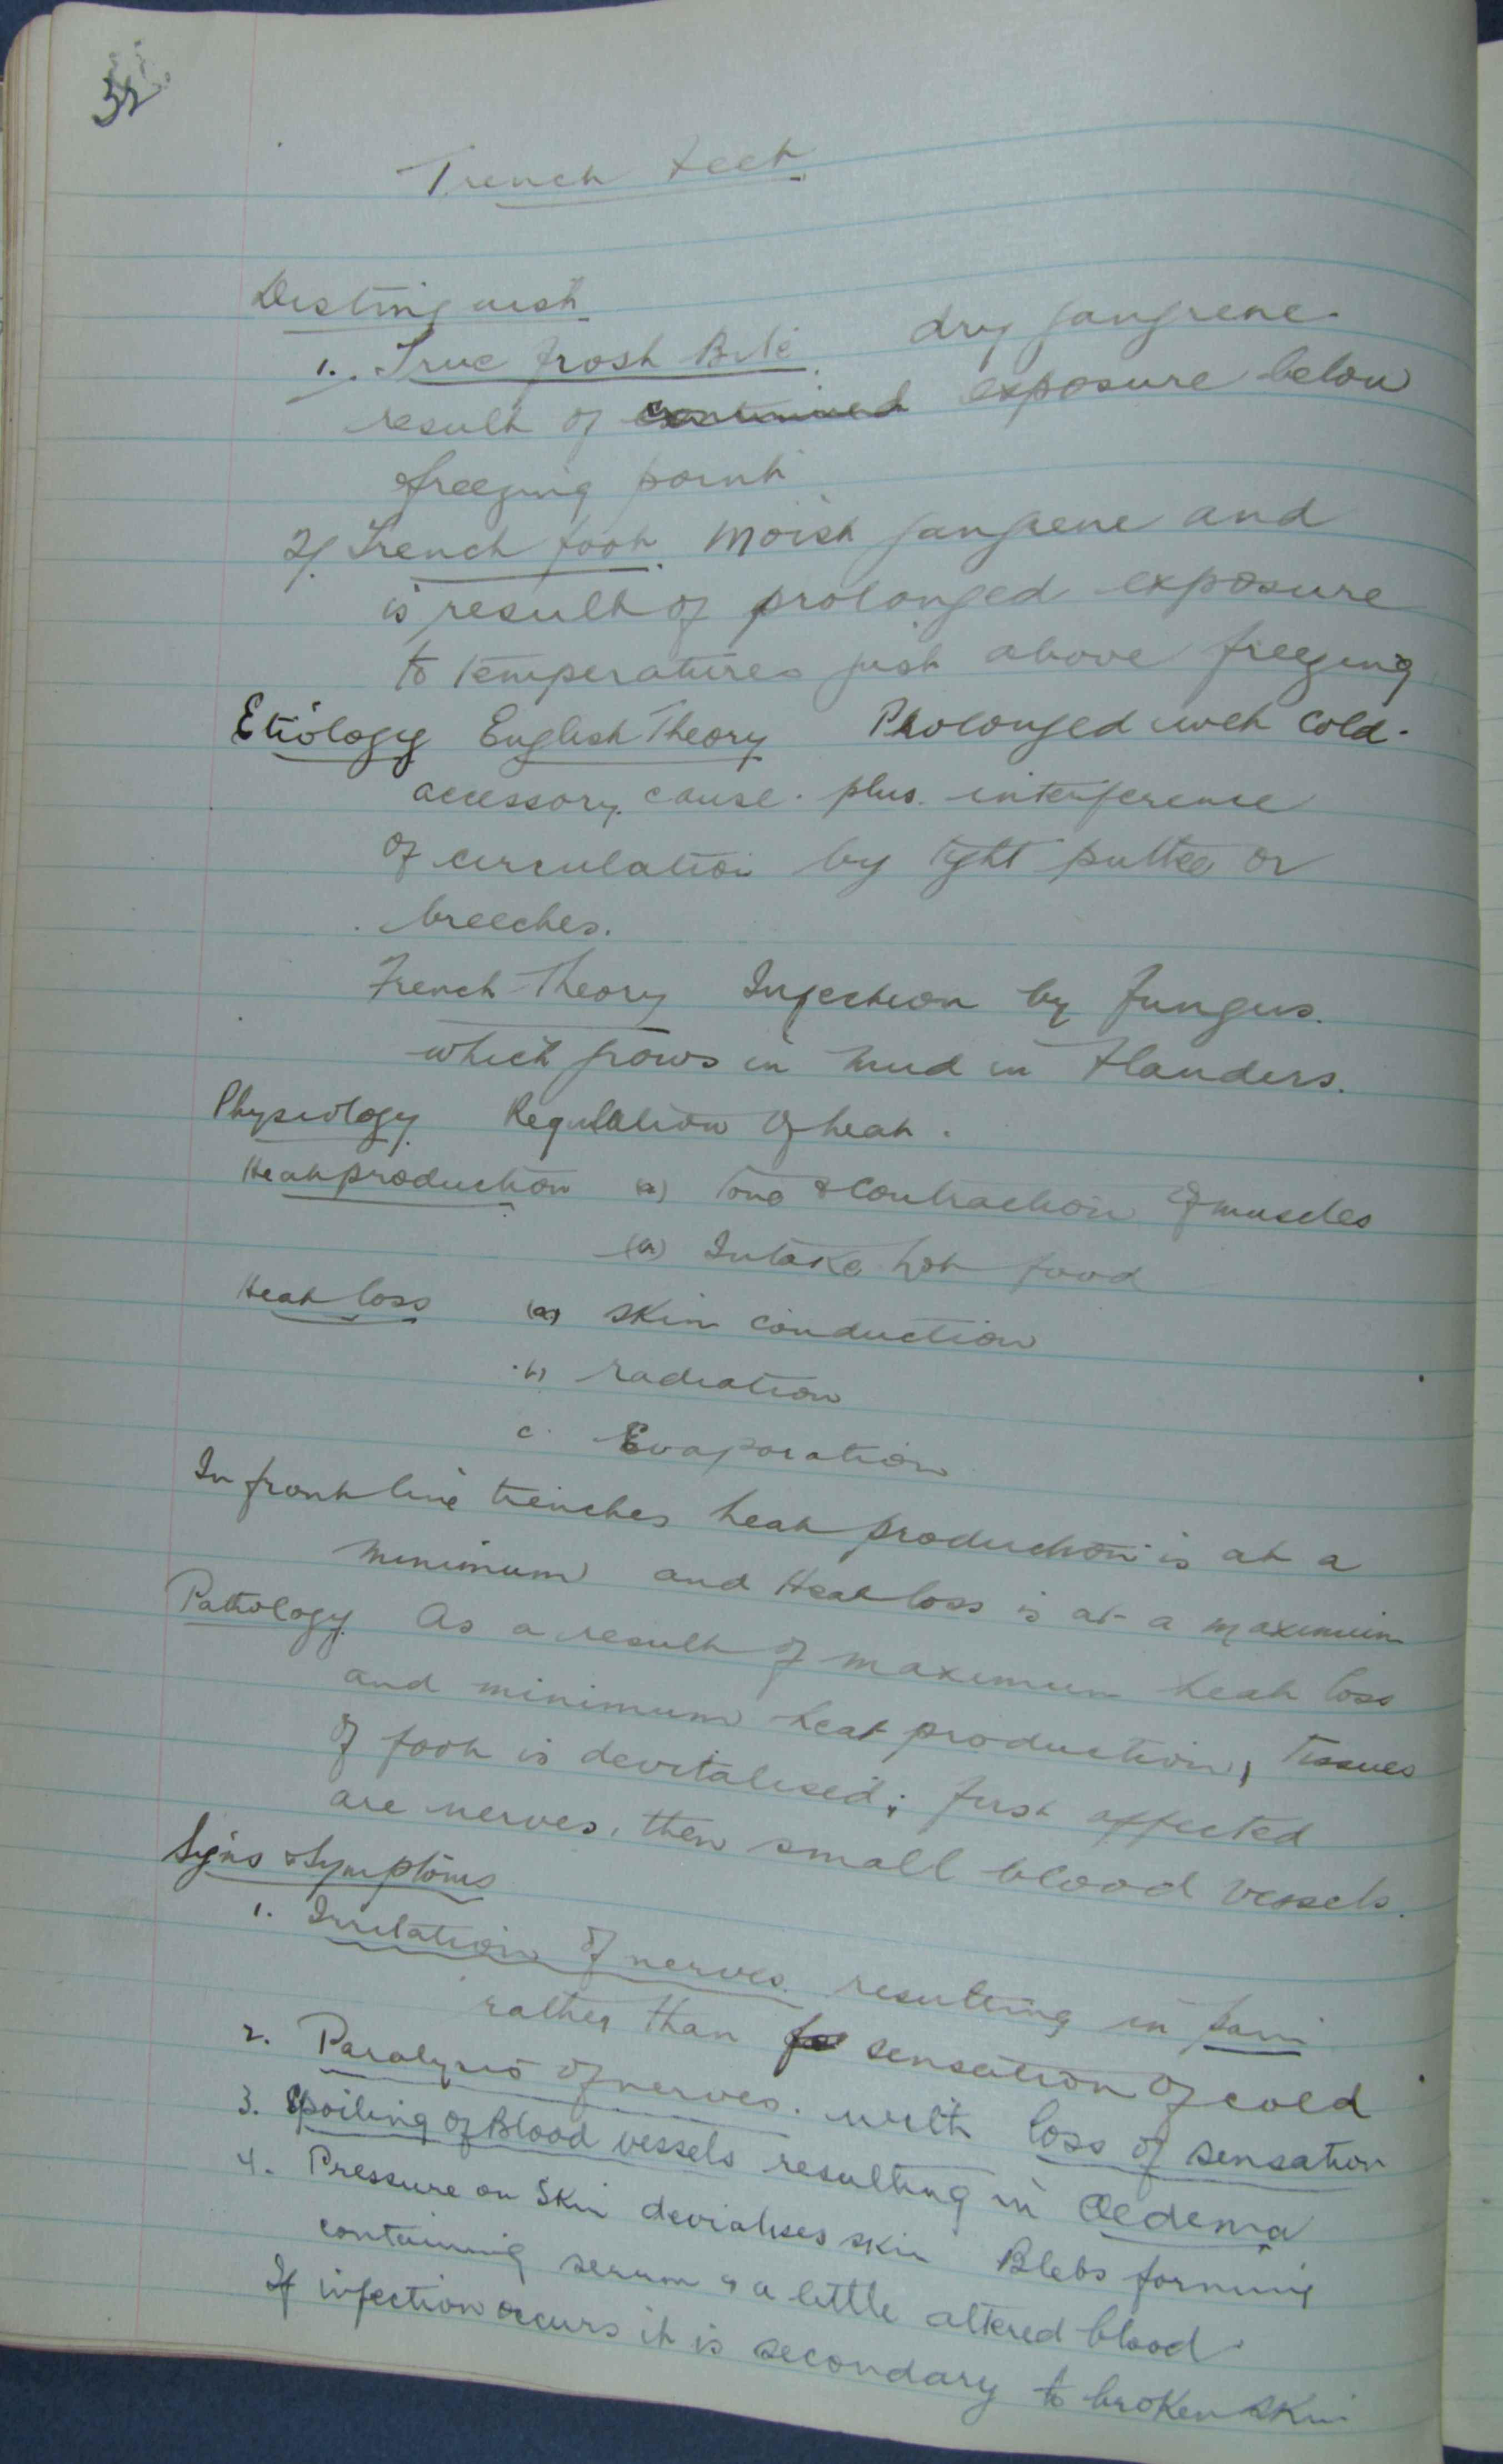 52
Trench Feet.
Distinguish
1. True frost Bite. dry gangrene.
result of continued exposure below
freezing point
2/. Trench foot. Moist gangrene and
is result of prolonged exposure
to temperatures just above freezing
Etiology English Theory Prolonged wet cold.
accessory cause. plus. interference
of circulation by tight puttee or
breeches.
French Theory Infection by fungus.
which grows in mud in Flanders.
Physiology. Regulation of heat.
Heat production (a) Tone & Contraction of muscles
(b) Intake hot food
Heat loss (a) Skin conduction
(b) radiation
c. Evaporation
In front line trenches heat production is at a
minimum and Heat loss is at a maximum
Pathology. As a result of maximum heat loss
and minimum heat production, Tissues
of foot is devitalised; first affected
are nerves, then small blood vessels.
Signs & Symptoms
1. Irritation of nerves. resulting in pain
rather than sensation of cold
2. Paralysis of nerves. with loss of sensation
3. Spoiling of Blood vessels resulting in Oedema
4. Pressure on Skin devialises skin Blebs forming
containing serum & a little altered blood.
If infection occurs it is secondary to broken skin